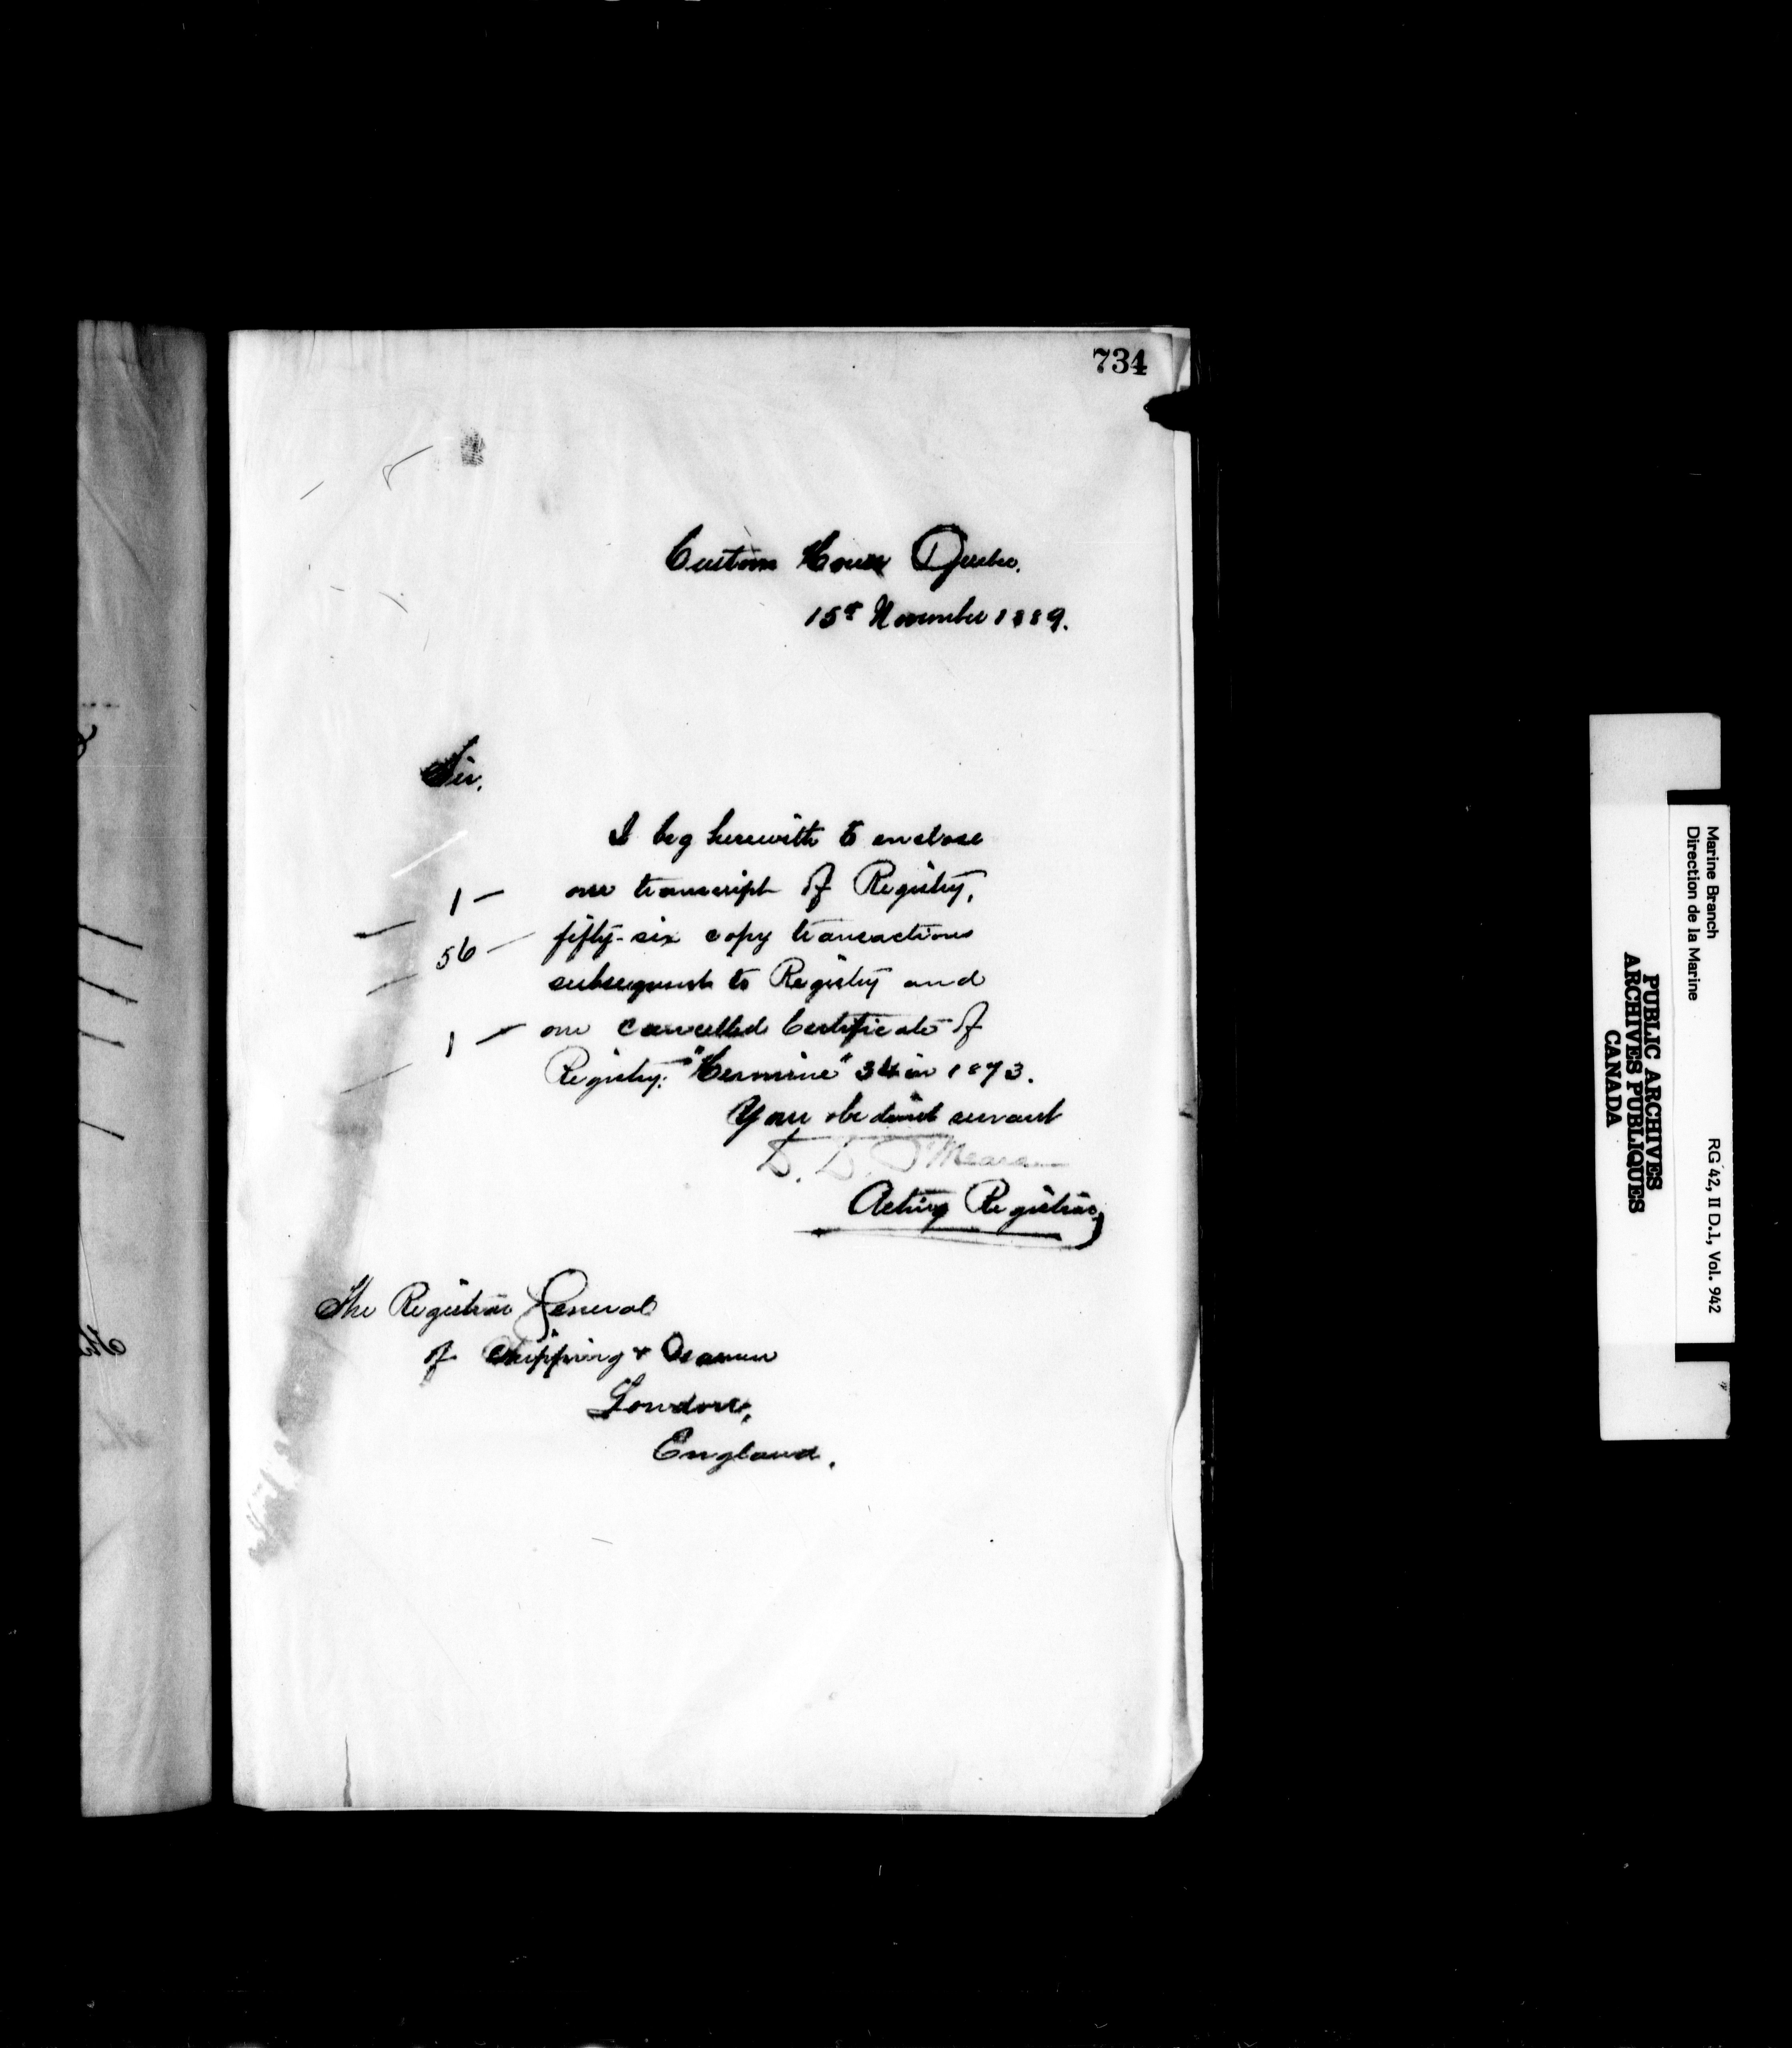 734
Custom House Quebec.
15th November 1889.
Sir,
I beg herewith to enclose
1 — one transcript of Registry,
56 — fifty-six copy transactions
subsequent to Registry and
1 — one cancelled Certificate of
Registry: "Hermine" 34 in 1873.
Your obedient servant
D. D. O'Meara
Acting Registrar,
The Registrar General
of Shipping & Seamen
London,
England.
Marine Branch
Direction de la Marine
RG 42, II D.1, Vol. 942
PUBLIC ARCHIVES
ARCHIVES PUBLIQUES
CANADA